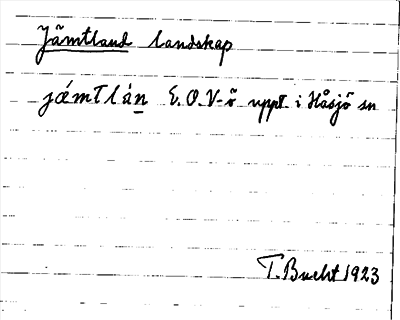 Jämtland landskap
jǽmtlán E.O.V-ö uppt i Håsjö sn
T. Bucht 1923